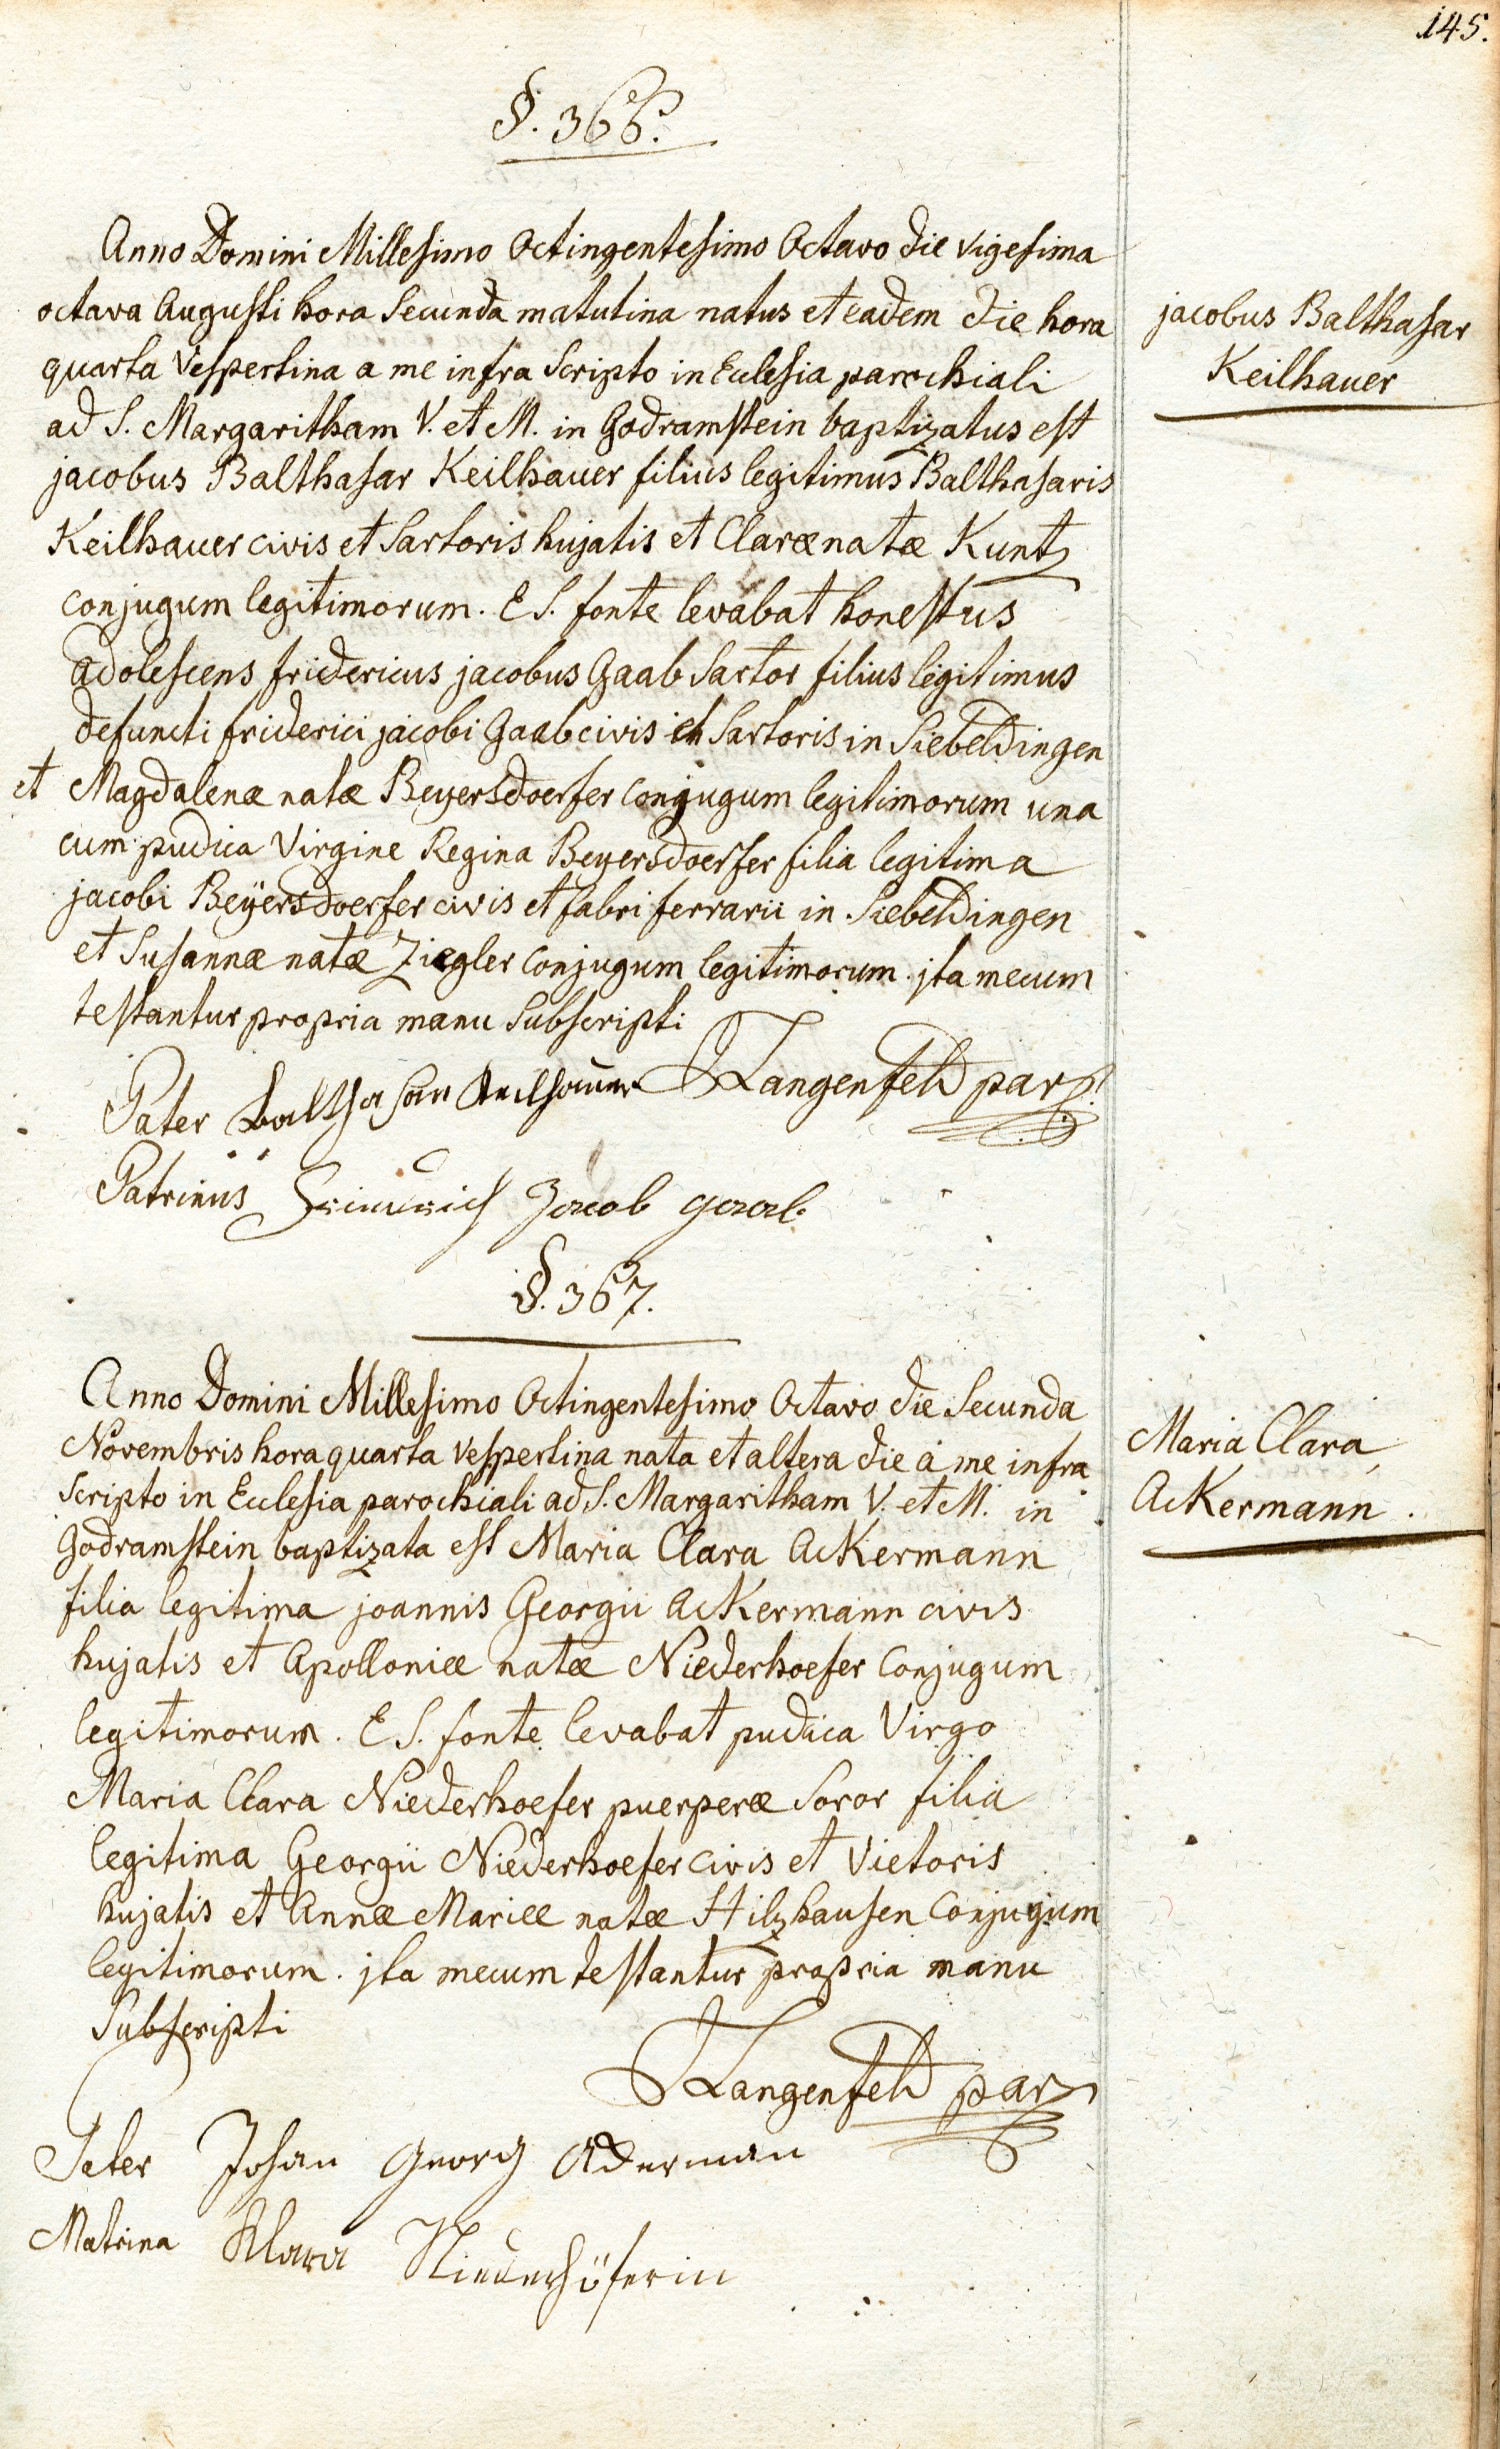 145.
§. 366.
Anno Domini Millesimo Octingentesimo Octavo die vigesima
octava Augusti hora Secunda matutina natus et eadem die hora
quarta Vespertina a me infra Scripto in Eclesia parochiali
ad S. Margaritham V. et M. in Godramstein baptizatus est
jacobus Balthasar Keilhauer filius legitimus Balthasaris
Keilhauer civis et Sartoris hujatis et Claræ natæ Kuntz
conjugum legitimorum. E S. fonte levabat honestus
adolescens fridericus jacobus Gaab Sartor filius legitimus
defuncti friderici jacobi Gaab civis et Sartoris in Siebeldingen
et Magdalenæ natæ Beyersdoerfer conjugum legitimorum una
cum pudica Virgine Regina Beyersdoerfer filia legitima
jacobi Beÿersdoerfer civis et fabri ferrarii in Siebeldingen
et Susannæ natæ Ziegler conjugum legitimorum. jta mecum
testantur propria manu Subscripti
Langenfeld par.
Pater Balthasar Keilhauer
Patrinus Friederich Jacob gaab
jacobus Balthasar
Keilhauer
§. 367.
Anno Domini Millesimo Octingentesimo Octavo die Secunda
Novembris hora quarta vespertina nata et altera die a me infra
scripto in Eclesia parochiali ad S. Margaritham V. et M. in
Godramstein baptizata est Maria Clara AcKermann
filia legitima joannis Georgii AcKermann civis
hujatis et Apolloniæ natæ Niederhoefer conjugum
legitimorum. E S. fonte levabat pudica Virgo
Maria Clara Niederhoefer puerperæ Soror filia
legitima Georgii Niederhoefer civis et Vietoris
hujatis et Annæ Mariæ natæ Hilzhausen conjugum
legitimorum. jta mecum testantur propria manu
Subscripti
Langenfeld par
Pater Johan Georg Ackerman
Matrina Klara Niederhöferin
Maria Clara
AcKermann.